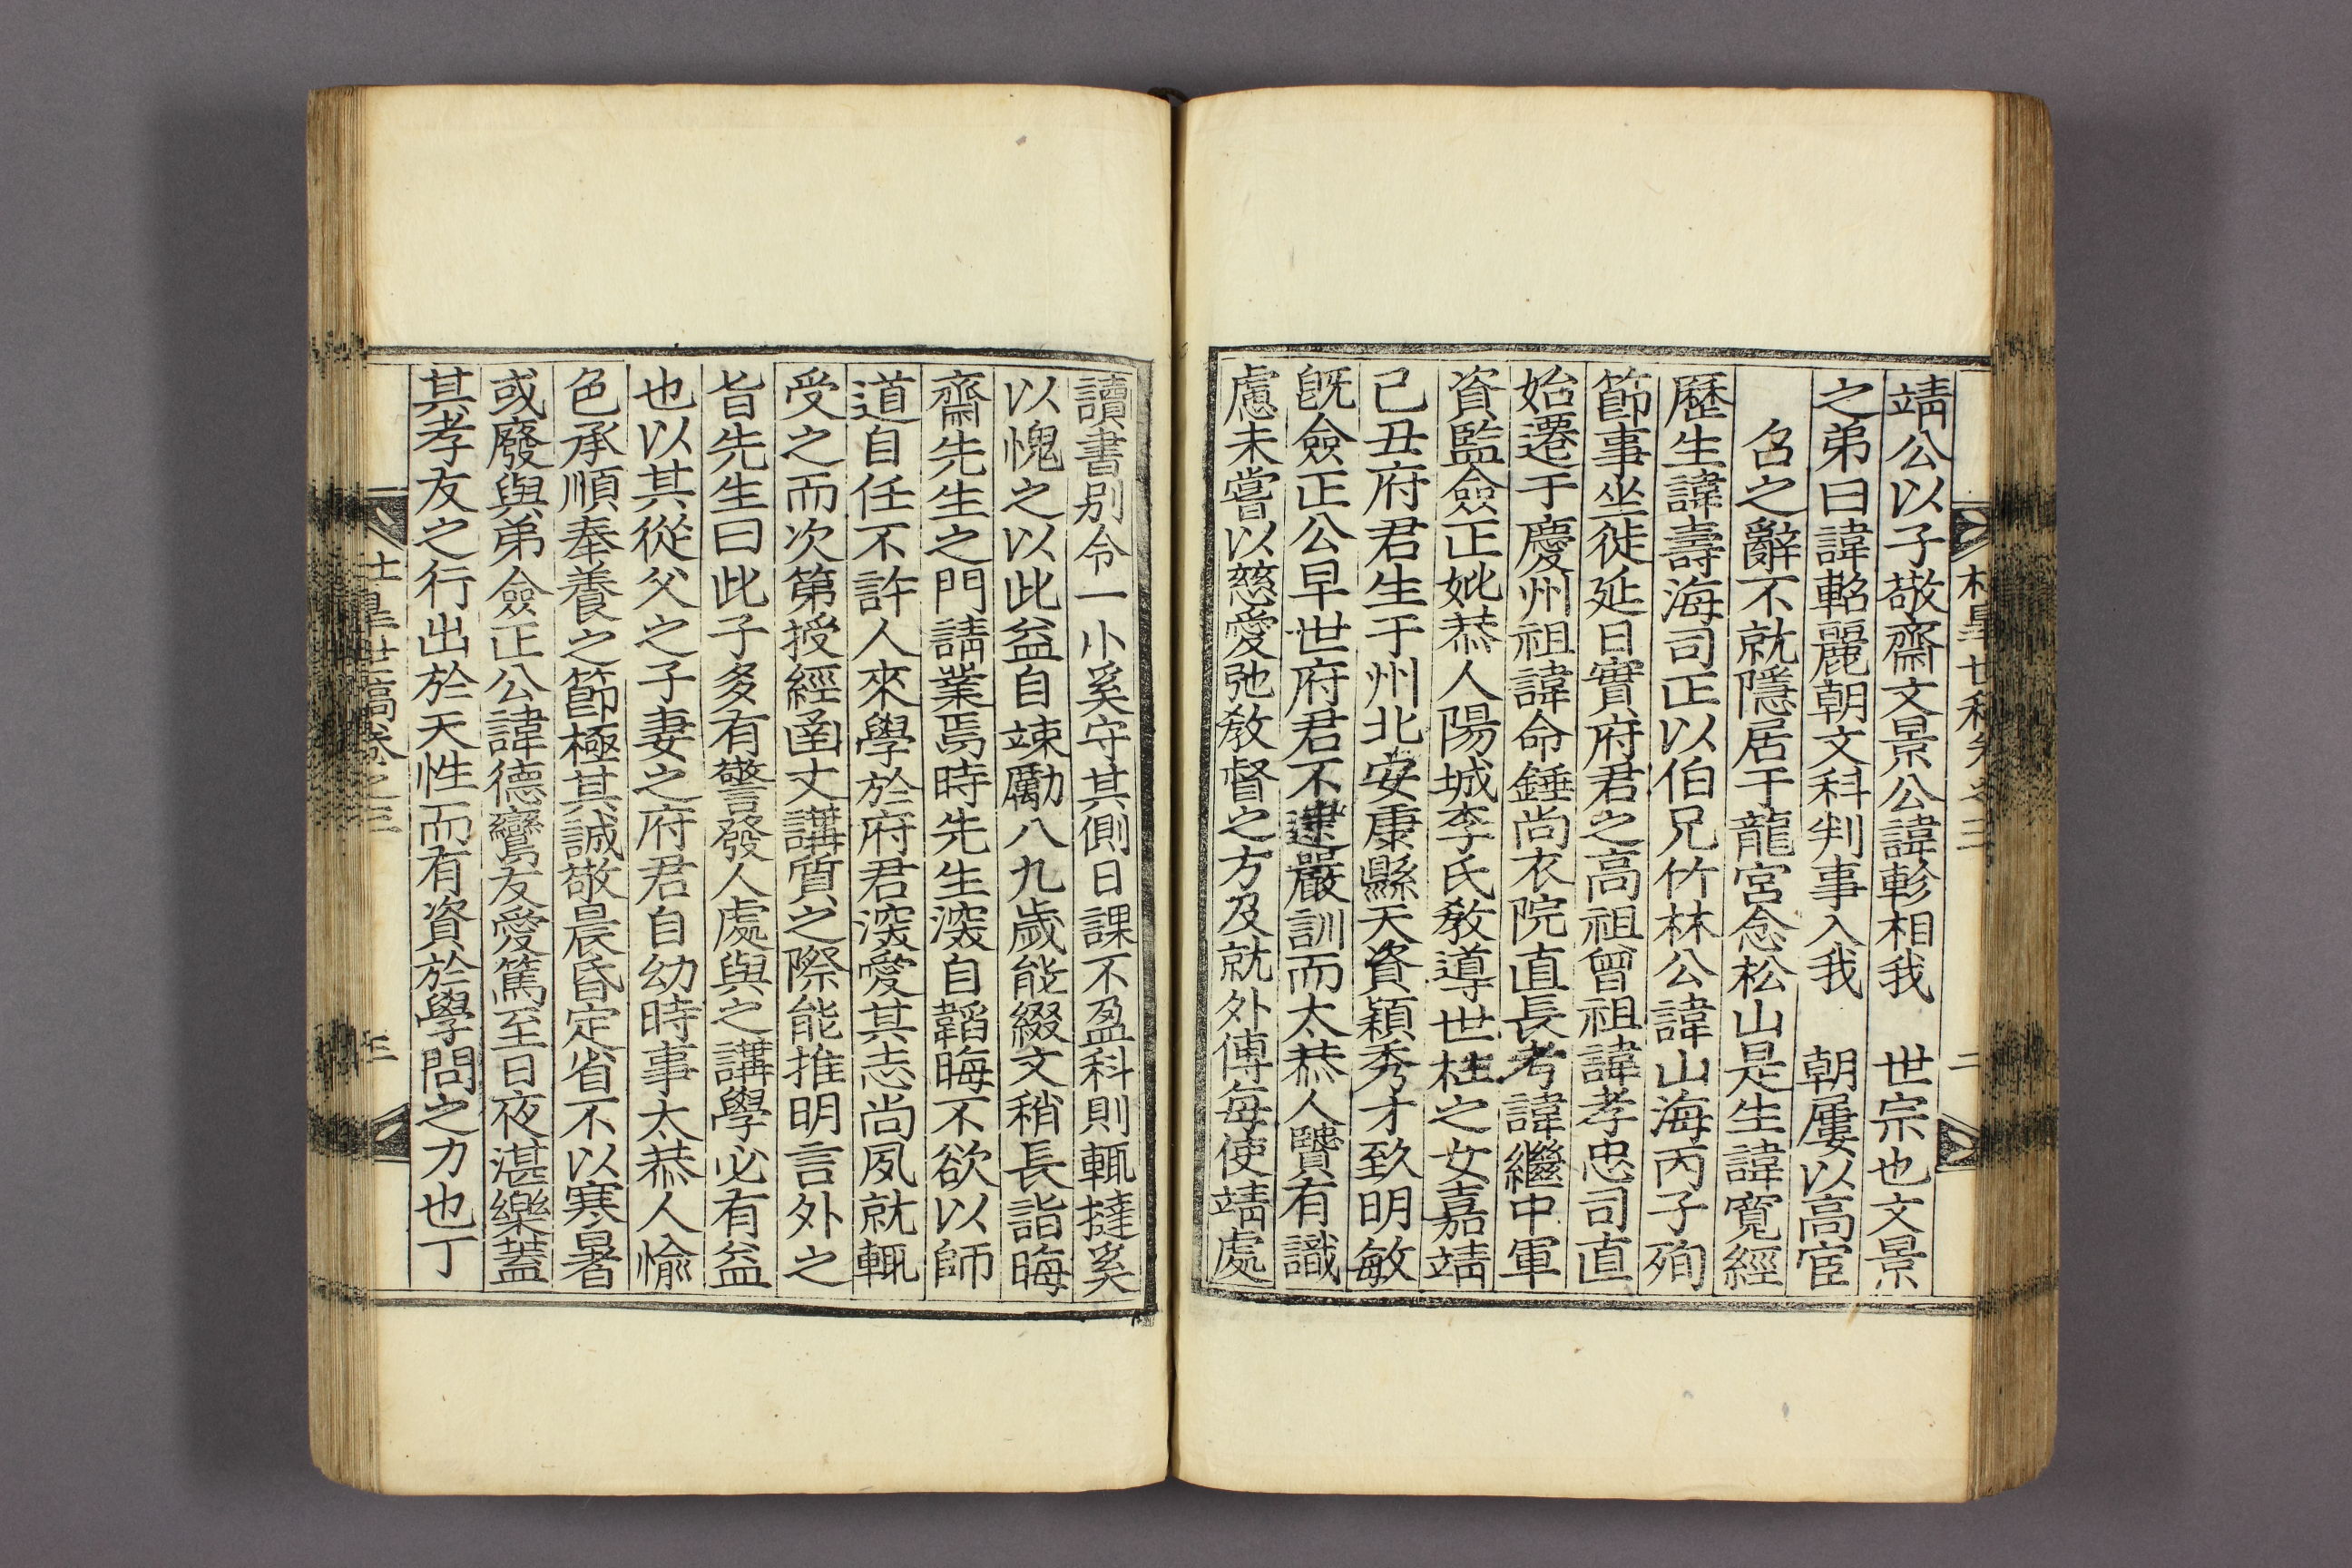 靖公以子敬齋文景公諱軫相我　世宗也文景
之弟曰諱軺麗朝文科判事入我　朝屢以高宦
召之辭不就隱居于龍宮念松山是生諱寬經
歷生諱壽海司正以伯兄竹林公諱山海丙子殉
節事坐徙延日實府君之高祖曾祖諱孝忠司直
始遷于慶州祖諱命錘尚衣院直長考諱繼中軍
資監僉正妣恭人陽城李氏敎導世桂之女嘉靖
己丑府君生于州北安康縣天資穎秀才致明敏
旣僉正公早世府君不逮嚴訓而太恭人賢有識
慮未嘗以慈愛弛敎督之方及就外傅每使靖處
讀書別令一小奚守其側日課不盈科則輒撻奚
以愧之以此益自竦勵八九歲能綴文稍長詣晦
齋先生之門請業焉時先生深自韜晦不欲以師
道自任不許人來學於府君深愛其志尚夙就輒
受之而次第授經函丈講質之際能推明言外之
旨先生曰此子多有警發人處與之講學必有益
也以其從父之子妻之府君自幼時事太恭人愉
色承順奉養之節極其誠敬晨昏定省不以寒暑
或廢與弟僉正公諱德鸞友愛篤至日夜湛樂蓋
其孝友之行出於天性而有資於學問之力也丁
世稿卷之三
三